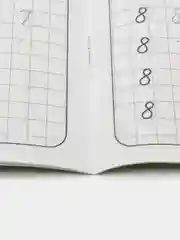 7
8
8
8
8